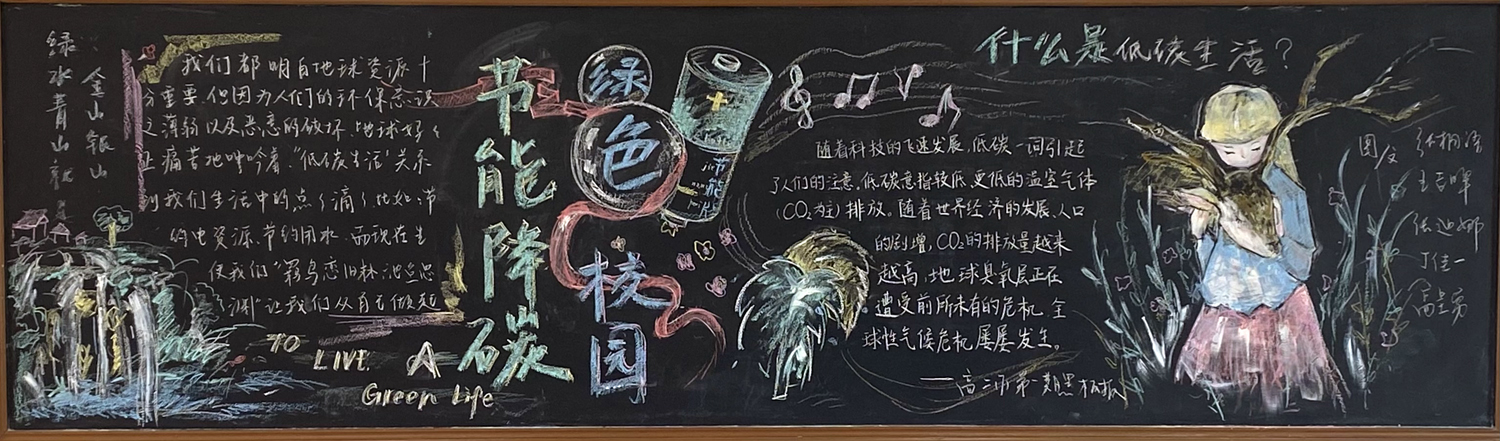 绿水青山就是
金山银山
我们都明白地球资源十
分重要,但因为人们的环保意识
之薄弱以及恶意的破坏,地球好似
正痛苦地呻吟着。“低碳生活”关系
到我们生活中的点点滴滴,比如:节
约电资源,节约用水,而现在生
使我们“羁鸟恋旧林,池鱼思
渊”让我们从自己做起
TO LIVE A
Green Life
节能降碳
绿色校园
节能
什么是低碳生活?
随着科技的飞速发展,低碳一词引起
了人们的注意,低碳意指较低、更低的温室气体
(CO₂为主)排放。随着世界经济的发展、人口
的剧增,CO₂的排放量越来
越高,地球臭氧层正在
遭受前所未有的危机,全
球性气候危机屡屡发生。
图文
丁佳一